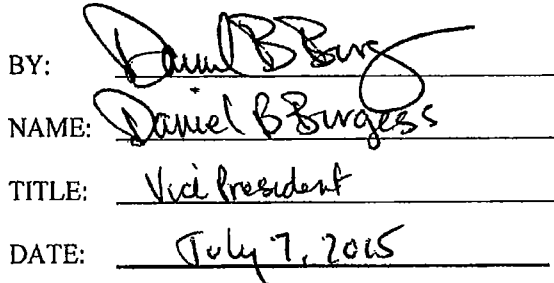 BY: Daniel B Burg
NAME: Daniel B Burgess
TITLE: Vice President
DATE: July 7, 2015